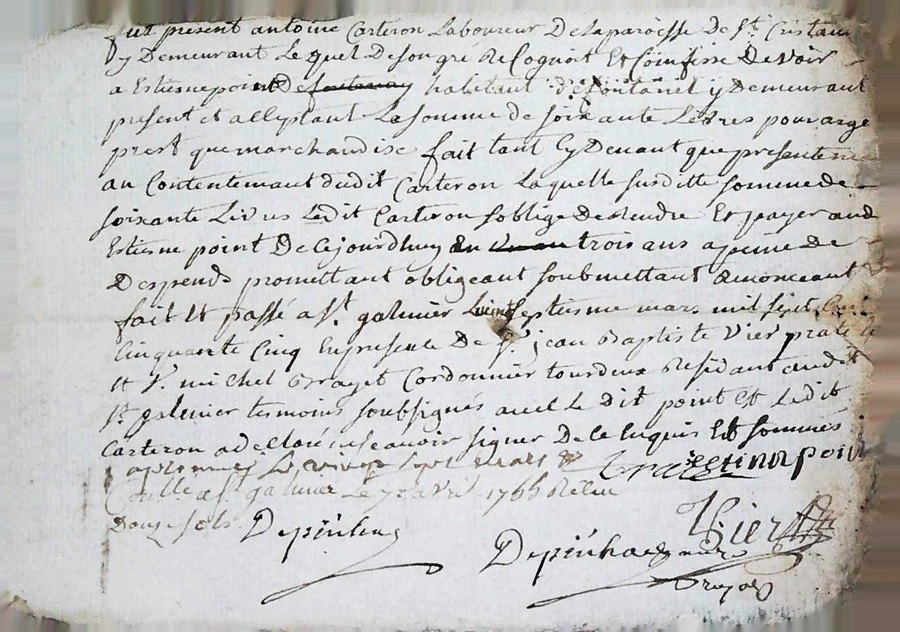 fut present antoine Carteron Laboureur De laparoisse De St. Cristau
y Demeurant Lequel Desongré Recognoit Et Confesse Devoir
a Estienne point De habitant de fontanel y Demeurant
present et acceptant La somme de soixante Livres pour arge
prest que marchandise fait tant Cy Devant que presenteme
au Contentemant dudit Carteron Laquelle surditte somme de
soixante Livres Ledit Carteron soblige de Rendre Et payer aud
Estienne point De Cejourdhuy En trois ans apeine de
Despends promettant obligeant soubmettant Renonceant
fait Et passé a St. galmier Levint septiesme mars mil sept Cent
Cinquante Cinq Enpresence De Sr. jean Baptiste Vier
Et Sr. michel Brayet Cordonnier Residant audit
St. galmier temoins soubsignés avec Le Dit point Et Ledit
Carteron adeclaré nescavoir signer De Ce Enquis Et sommés
Estienne poin
a St. galmier Le avril
Douze sols
Vier